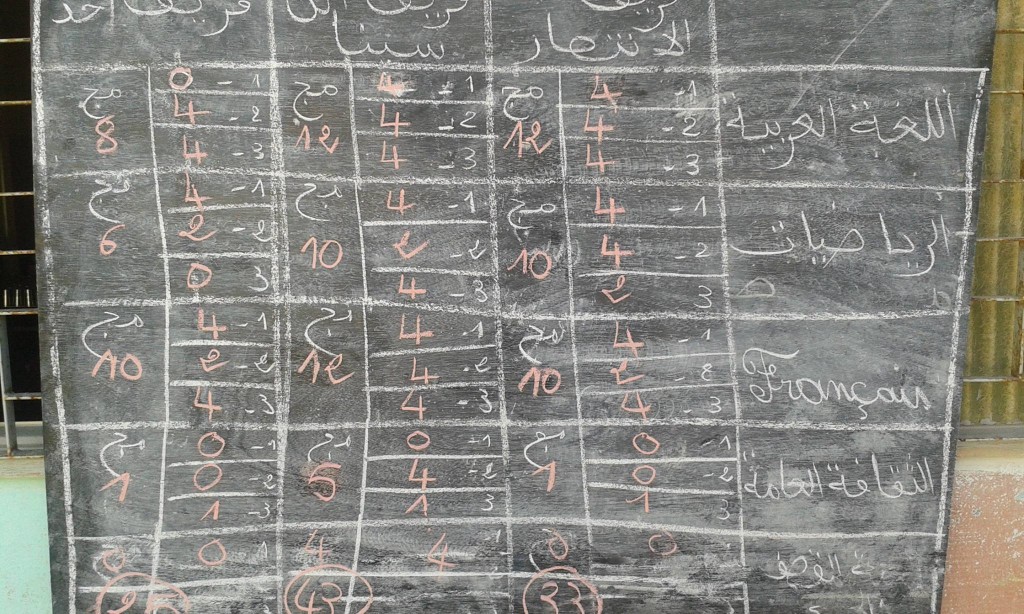 فريق الانتصار فريق ابن سينا فريق أحد
اللغة العربية
1- 4
2- 4
3- 4
مج 12
1- 4
2- 4
3- 4
مج 12
1- 0
2- 4
3- 4
مج 8
الرياضيات
1- 4
2- 4
3 2
مج 10
1- 4
2- 2
3- 4
مج 10
1- 4
2- 2
3 0
مج 6
Français
1- 4
2- 2
3- 4
مج 10
1- 4
2- 4
3- 4
مج 12
1- 4
2- 2
3- 4
مج 10
الثقافة العامة
1- 0
2- 0
3 1
مج 1
1- 0
2- 4
3 1
مج 5
1- 0
2- 0
3- 1
مج 1
0 0
1- 4 4
1- 0 0
33 43 25